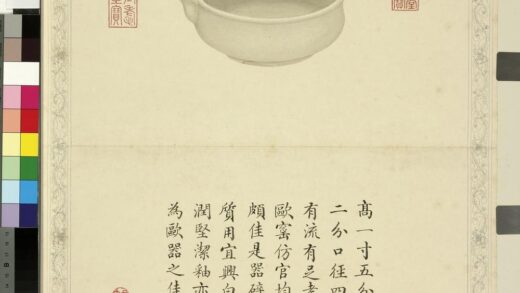 髙一寸五分
二分口徑四
有流有足素
歐窑仿官均
頗佳是器碎
質用宜興白
潤堅潔釉亦
為歐器之佳